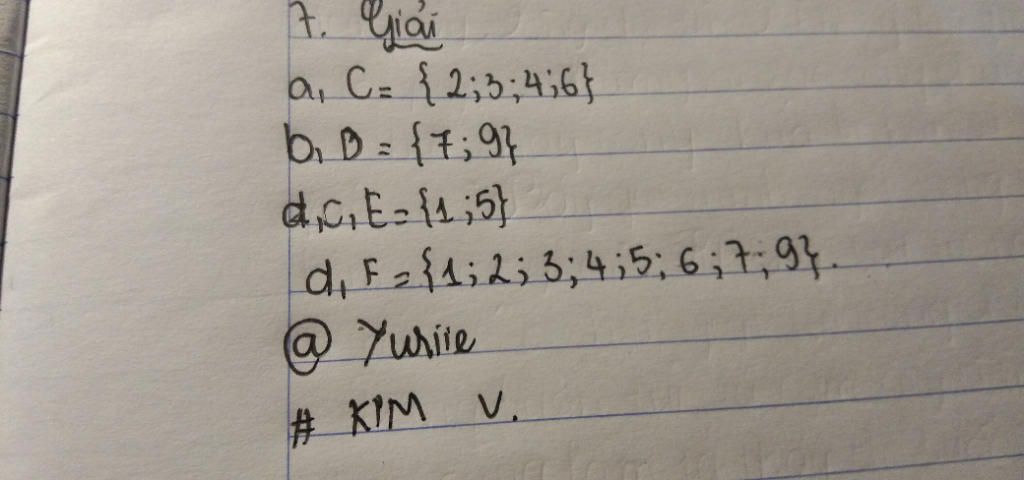 7. Giải
a, C = { 2;3;4;6}
b, D = {7;9}
d,c, E = {1;5}
d, F = {1;2;3;4;5;6;7;9}.
@ Yuriie
# KIM V.